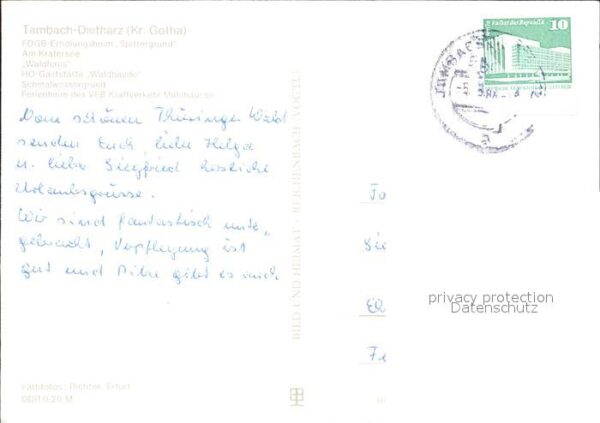 Tambach-Dietharz (Kr. Gotha)
FDGB-Erholungsheim „Spittergrund"
Am Kratersee
„Waldhaus"
HO-Gaststätte „Waldbaude"
Schmalwassergrund
Ferienheim des VEB Kraftverkehr Mühlhausen
Vom schönen Thüringer Wald
senden Euch, liebe Helga
u. lieber Siegfried herzliche
Urlaubsgrüsse.
Wir sind fantastisch unter-
gebracht, Verpflegung ist
gut und gibt es auch
Farbfotos: Richter, Erfurt
DDR 0,20 M
BILD UND HEIMAT REICHENBACH (VOGTL)
Palast der Republik
10
Fa
Sie
Fr
privacy protection
Datenschutz